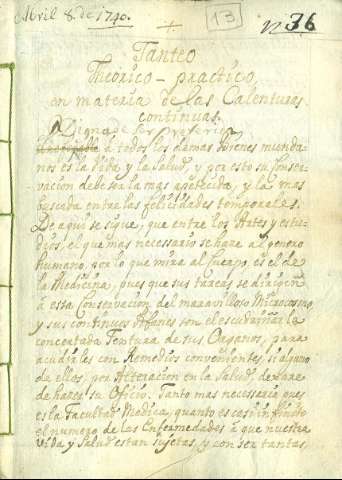 Abril 8. de 1740.
13
nº 36
Tanteo
Theorico-practico,
en materia de las Calenturas
continuas.
Digna de ser preferida
à todos los demas bienes munda-
nos es la vida, y la Salud, y por esto su Conser-
vacion debe ser la mas apetecida, y la mas
buscada entre las felicidades temporales.
De aqui se sigue, que entre los Artes y estu-
dios, el que mas necessario se hace al genero
humano, por lo que mira al Cuerpo, es el de
la Medicina, pues que sus tareas se dirigen
à esta Conservacion del maravilloso Microcosmo,
y sus continuos Afanes son el escudriñar la
concertada Textura de sus Organos, para
acudirles con Remedios convenientes, si alguno
de ellos, por Alteracion en la Salud, dexare
de hacer su Oficio. Tanto mas necessaria pues
es la Facultad Medica, quanto es casi infinito
el numero de las Enfermedades à que nuestra
vida y Salud estan sujetas, y con ser tantas,